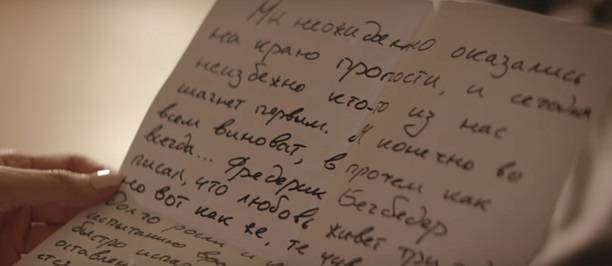 Мы неожиданно оказались
на краю пропасти, и сегодня
неизбежно кто-то из нас
шагнет первым. Я конечно во
всем виноват, в прочем как
всегда... Фредерик Бегбедер
писал, что любовь живет три
но вот как же, те
Долго
испытанию
быстро
оставлен